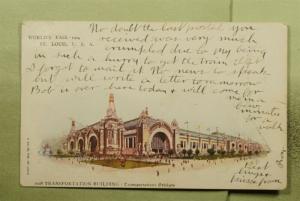 No doubt the last postal you
WORLD'S FAIR 1904
ST. LOUIS, U. S. A.
received was very much
crumpled due to my being
in such a hurry to get the train I
forgot to mail it. No news to speak
but will write a letter tomorrow
Bob is over here today & will come for
me in a
few
minutes for
a
walk
Best
TRANSPORTATION BUILDING
from